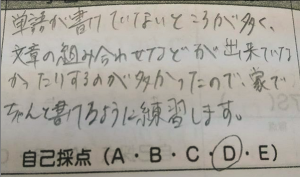 単語が書けていないところが多く、
文章の組み合わせなどが出来ていな
かったりするのが多かったので、家で
ちゃんと書けるように練習します。
自己採点（A・B・C・D・E）